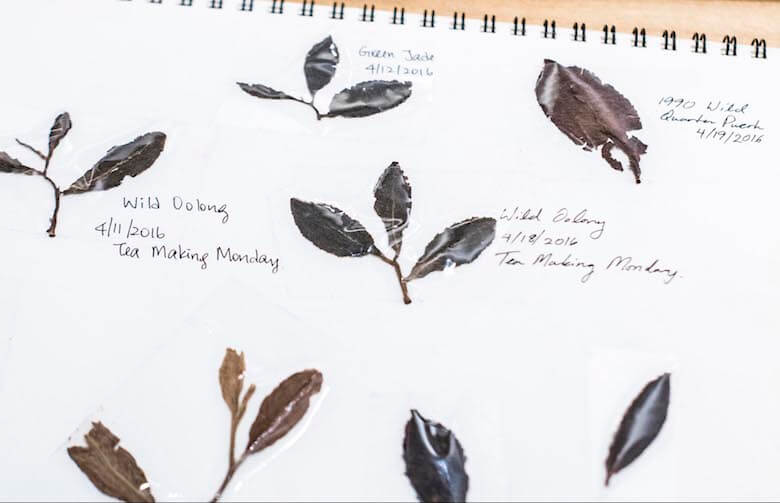 Green Jade
4/12/2016
1990 Wild
Quarter Puerh
4/19/2016
Wild Oolong
4/11/2016
Tea Making Monday
Wild Oolong
4/18/2016
Tea Making Monday.